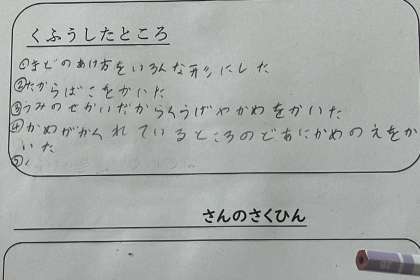 くふうしたところ
①まどのあけ方をいろんな形にした
②たからばこをかいた
③うみのせかいだからくうげやかめをかいた
④かめがかくれているところのどあにかめのえをか
いた
⑤
さんのさくひん